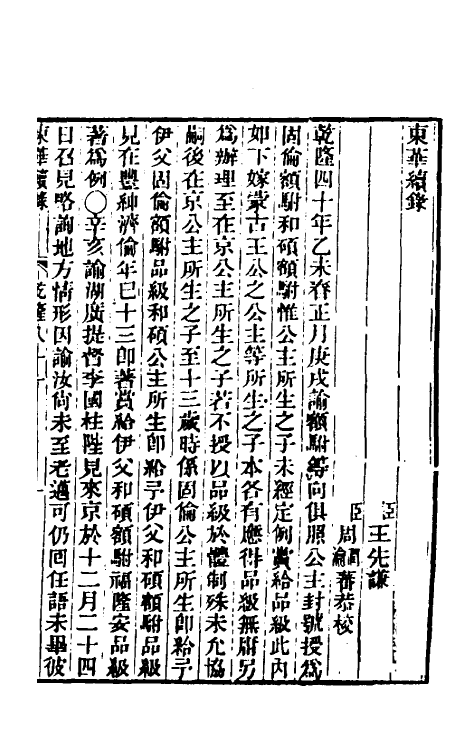 東華續錄
臣王先謙
臣周潤蕃恭校
周瀹蕃
乾隆四十年乙未春正月庚戌諭額駙等向俱照公主封號授爲
固倫額駙和碩額駙惟公主所生之子未經定例賞給品級此內
如下嫁蒙古王公之公主等所生之子本各有應得品級無庸另
爲辦理至在京公主所生之子若不授以品級於體制殊未允協
嗣後在京公主所生之子至十三歲時係固倫公主所生卽給予
伊父固倫額駙品級和碩公主所生卽給予伊父和碩額駙品級
見在豐紳濟倫年已十三卽著賞給伊父和碩額駙福隆安品級
著爲例○辛亥諭湖廣提督李國柱陛見來京於十二月二十四
日召見略詢地方情形因諭汝尙未至老邁可仍回任語未畢彼
東華續錄 乾隆八十一